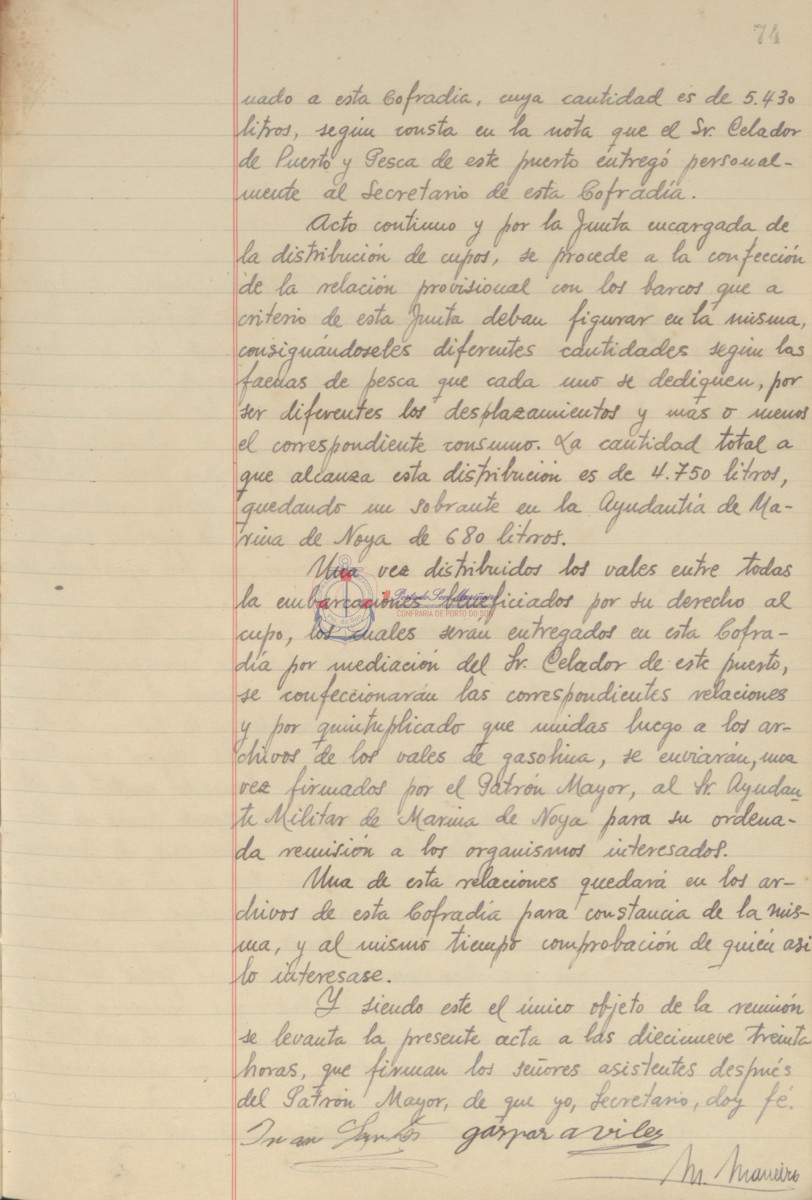 74
nado a esta Cofradia, cuya cantidad es de 5.430
litros, según consta en la nota que el Sr. Celador
de Puerto y Pesca de este puerto éntregó personal-
mente al Secretario de esta Cofradía.
Acto continuo y por la Junta encargada de
la distribución de cupos, se procede a la confección
de la relación provisional con los barcos que a
criterio de esta Junta deban figurar en la misma,
consignándoseles diferentes cantidades según las
faenas de pesca que cada uno se dediquen, por
ser diferentes los desplazamientos y mas o menos
el correspondiente consumo. La cantidad total a
que alcanza esta distribución es de 4.750 litros,
quedando un sobrante en la Ayudantía de Ma-
rina de Noya de 680 litros.
Una vez distribuidos los vales entre todas
la embarcaciones beneficiados por su derecho al
CONFRARIA DE PORTO DO SON
cupo, los cuales serán entregados en esta Cofra-
día por mediación del Sr. Celador de este puerto,
se confeccionarán las correspondientes relaciones
y por quintuplicado que unidas luego a los ar-
chivos de los vales de gasolina, se enviarán, una
vez firmados por el Patrón Mayor, al Sr. Ayudan
te Militar de Marina de Noya para su ordena-
da remisión a los organismos interesados.
Una de esta relaciones quedará en los ar-
chivos de esta Cofradía para constancia de la mis-
ma, y al mismo tiempo comprobación de quién asi
lo interesase.
Y siendo este el único objeto de la reunión
se levanta la presente acta a las diecinueve treinta
horas, que firman los señores asistentes después
del Patrón Mayor, de que yo, Secretario, doy fé.
gaspar aviles
M. Maneiro